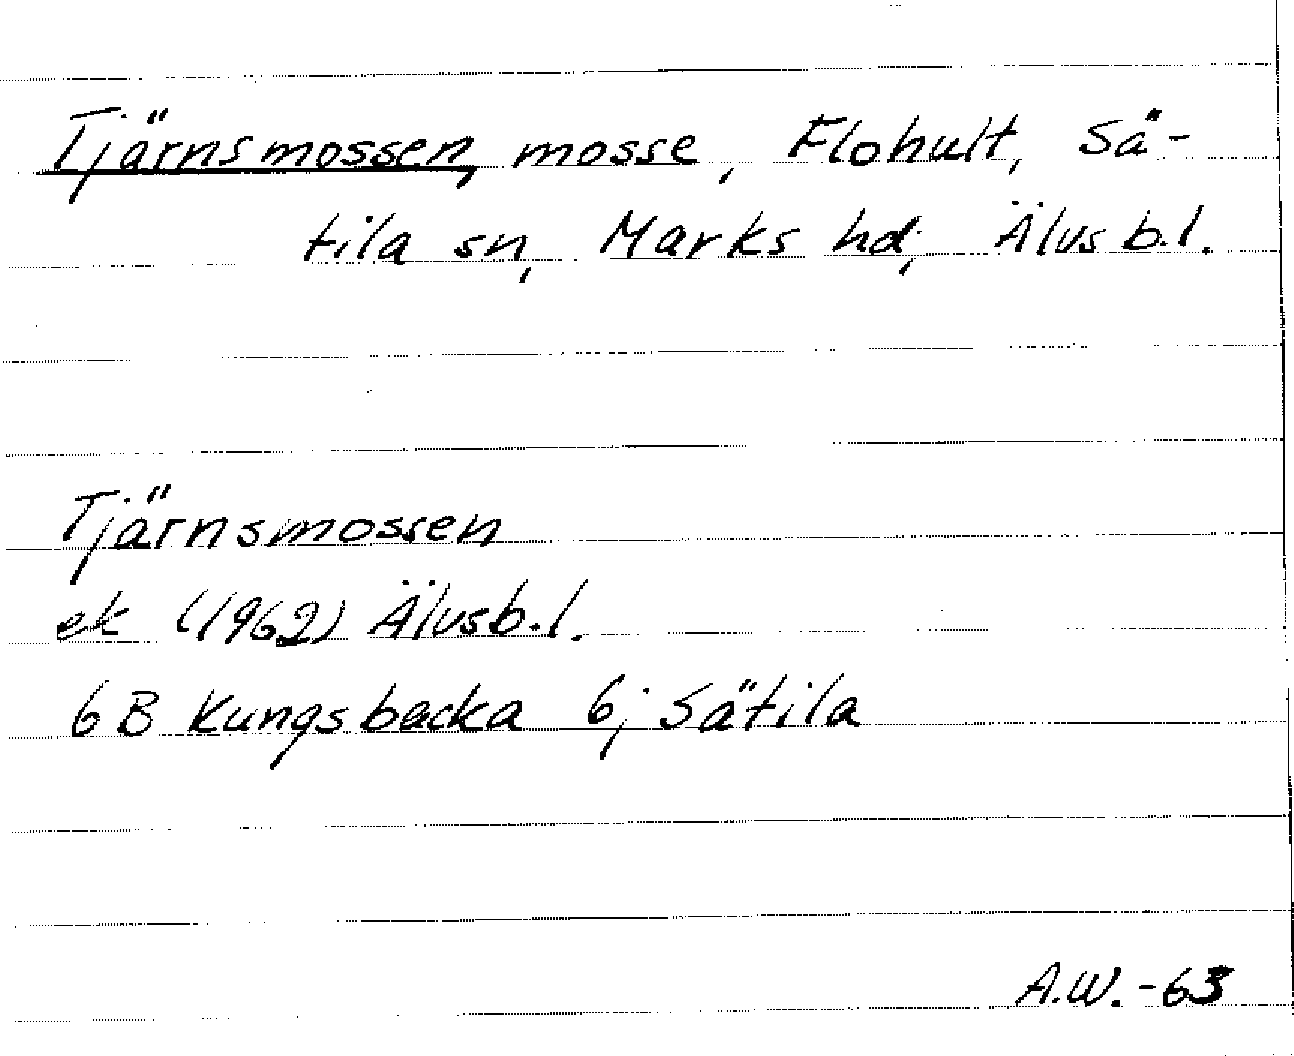 Tjärnsmossen, mosse, Flohult, Sä-
tila sn, Marks hd, Älvsb.l.
Tjärnsmossen
ek (1962) Älvsb.l.
6B Kungsbacka 6j Sätila
A.W.-63